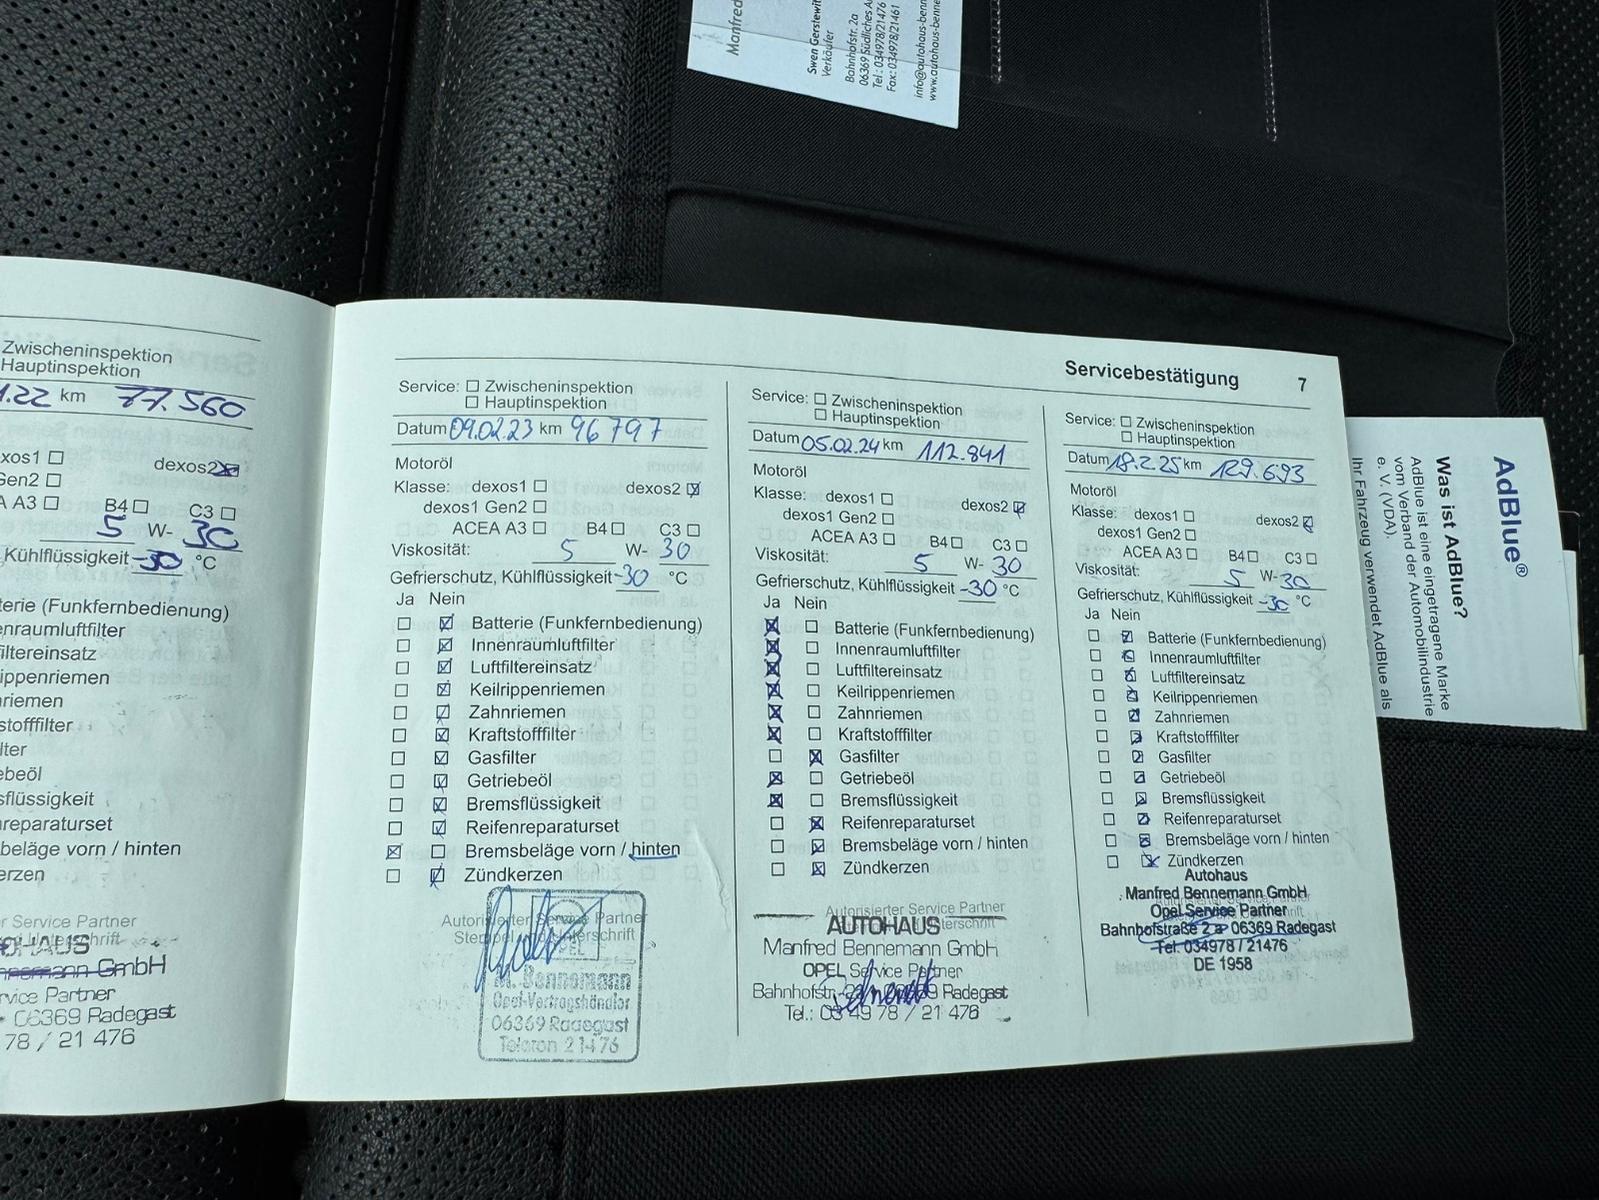 Manfred
Swen Gerstewit
Verkäufer
Bahnhofstr. 2a
06369 Südliches A
Tel.: 034978/21476
Fax: 034978/21461
info@autohaus-benn
www.autohaus-benne
Zwischeninspektion
Hauptinspektion
.22 km 77.560
xos1 ☐ dexos2 ☒
Gen2 ☐
A A3 ☐ B4 ☐ C3 ☐
5 W- 30
Kühlflüssigkeit -30 °C
terie (Funkfernbedienung)
nraumluftfilter
iltereinsatz
rippenriemen
riemen
stofffilter
lter
ebeöl
sflüssigkeit
reparaturset
beläge vorn / hinten
erzen
r Service Partner
OHAUS
nnemann GmbH
rvice Partner
06369 Radegast
78 / 21 476
Servicebestätigung 7
Service: ☐ Zwischeninspektion
☐ Hauptinspektion
Datum 09.02.23 km 96797
Motoröl
Klasse: dexos1 ☐ dexos2 ☒
dexos1 Gen2 ☐
ACEA A3 ☐ B4 ☐ C3 ☐
Viskosität: 5 W- 30
Gefrierschutz, Kühlflüssigkeit -30 °C
Ja Nein
☐ ☒ Batterie (Funkfernbedienung)
☐ ☒ Innenraumluftfilter
☐ ☒ Luftfiltereinsatz
☐ ☒ Keilrippenriemen
☐ ☒ Zahnriemen
☐ ☒ Kraftstofffilter
☐ ☒ Gasfilter
☐ ☒ Getriebeöl
☐ ☒ Bremsflüssigkeit
☐ ☒ Reifenreparaturset
☒ ☐ Bremsbeläge vorn / hinten
☐ ☒ Zündkerzen
Autorisierter Service Partner
OPEL
M. Bennemann
Opel-Vertragshändler
06369 Radegast
Telefon 21476
Service: ☐ Zwischeninspektion
☐ Hauptinspektion
Datum 05.02.24 km 112.841
Motoröl
Klasse: dexos1 ☐ dexos2 ☒
dexos1 Gen2 ☐
ACEA A3 ☐ B4 ☐ C3 ☐
Viskosität: 5 W- 30
Gefrierschutz, Kühlflüssigkeit -30 °C
Ja Nein
☒ ☐ Batterie (Funkfernbedienung)
☒ ☐ Innenraumluftfilter
☒ ☐ Luftfiltereinsatz
☒ ☐ Keilrippenriemen
☒ ☐ Zahnriemen
☒ ☐ Kraftstofffilter
☐ ☒ Gasfilter
☒ ☐ Getriebeöl
☒ ☐ Bremsflüssigkeit
☐ ☒ Reifenreparaturset
☐ ☒ Bremsbeläge vorn / hinten
☐ ☒ Zündkerzen
Autorisierter Service Partner
AUTOHAUS
Manfred Bennemann GmbH
OPEL Service Partner
Bahnhofstr. Radegast
Tel.: 03 49 78 / 21 476
Service: ☐ Zwischeninspektion
☐ Hauptinspektion
Datum 18.2.25 km 129.693
Motoröl
Klasse: dexos1 ☐ dexos2 ☒
dexos1 Gen2 ☐
ACEA A3 ☐ B4 ☐ C3 ☐
Viskosität: 5 W- 30
Gefrierschutz, Kühlflüssigkeit -30 °C
Ja Nein
☐ ☒ Batterie (Funkfernbedienung)
☐ ☒ Innenraumluftfilter
☐ ☒ Luftfiltereinsatz
☐ ☒ Keilrippenriemen
☐ ☒ Zahnriemen
☐ ☒ Kraftstofffilter
☐ ☒ Gasfilter
☐ ☒ Getriebeöl
☐ ☒ Bremsflüssigkeit
☐ ☒ Reifenreparaturset
☐ ☒ Bremsbeläge vorn / hinten
☐ ☒ Zündkerzen
Autohaus
Manfred Bennemann GmbH
Opel Service Partner
Bahnhofstraße 2 a 06369 Radegast
Tel. 034978 / 21476
DE 1958
AdBlue®
Was ist AdBlue?
AdBlue ist eine eingetragene Marke
vom Verband der Automobilindustrie
e. V. (VDA).
Ihr Fahrzeug verwendet AdBlue als